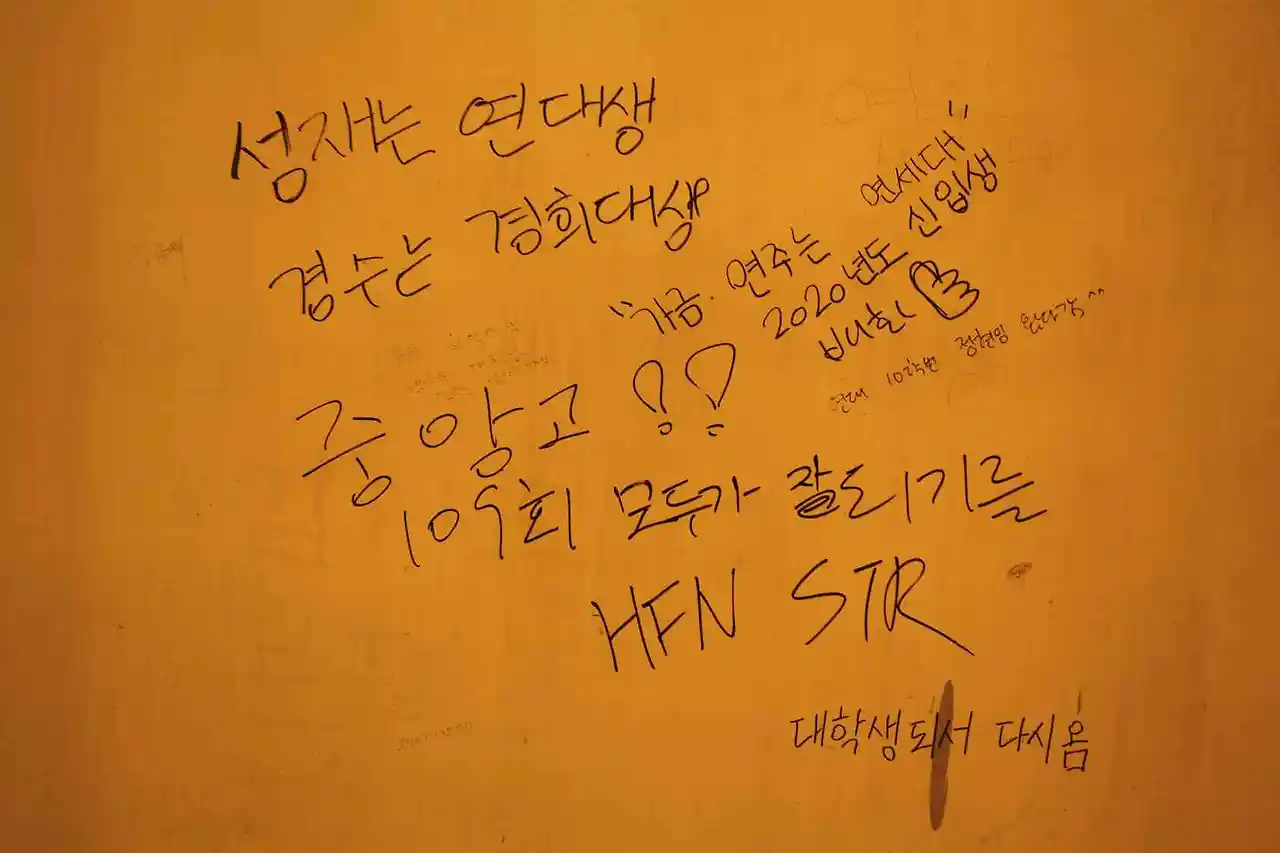 성재는 연대생
경수는 경희대생
"가금. 연주는 연세대"
2020년도 신입생
연대 10학번 정현잉 왔다감^^
중앙고!!
109회 모두가 잘되기를
HFN STR
대학생되서 다시옴